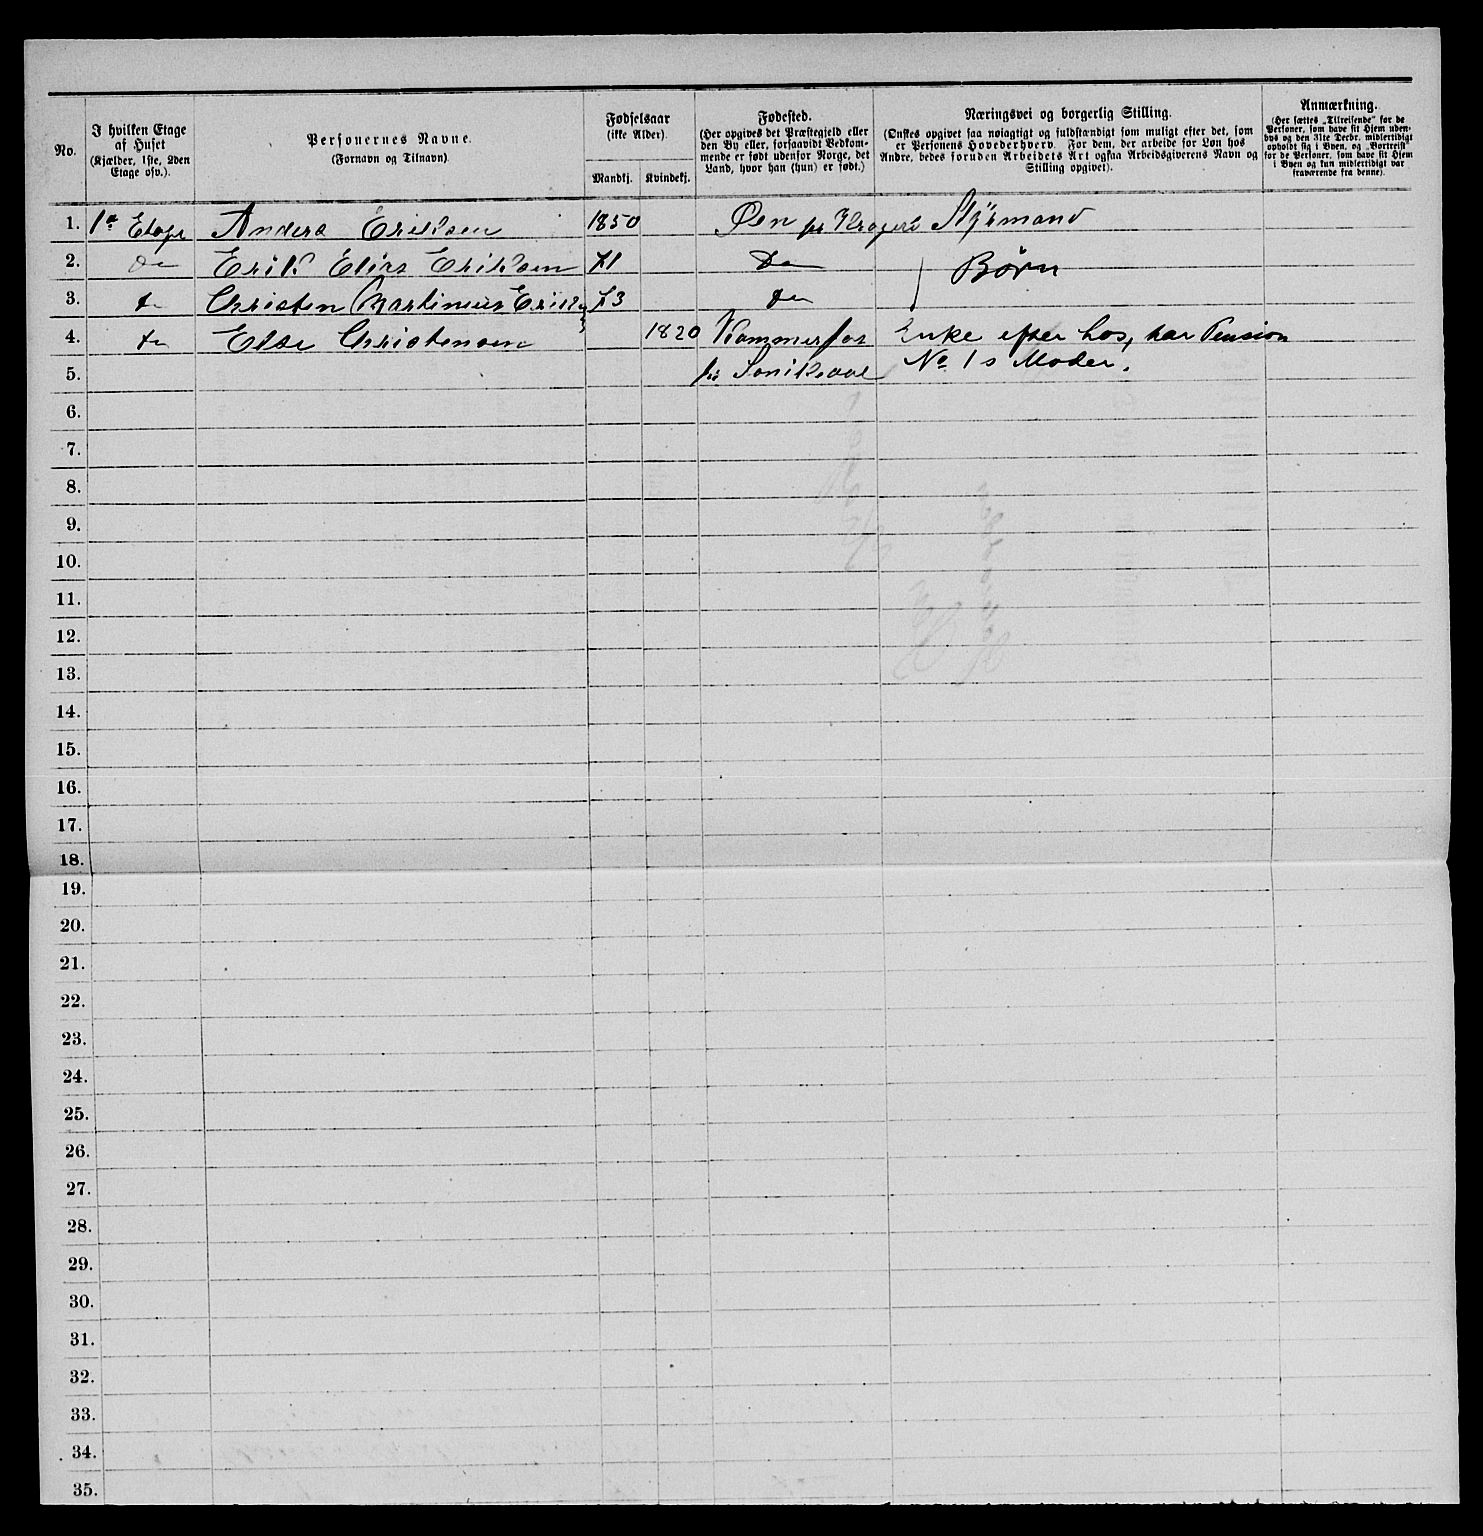 No.
I hvilken Etage
af Huset
(Kjælder, 1ste, 2den
Etage osv.).
Personernes Navne.
(Fornavn og Tilnavn).
Fødselsaar
(ikke Alder).
Mandkj. Kvindekj.
Fødested.
(Her opgives det Præstegjeld eller
den By eller, forsaavidt Vedkom-
mende er født udenfor Norge, det
Land, hvor han (hun) er født.)
Næringsvei og borgerlig Stilling.
(Ønskes opgivet saa nøiagtigt og fuldstændigt som muligt efter det, som
er Personens Hovederhverv. For dem, der arbeide for Løn hos
Andre, bedes foruden Arbeidets Art ogsaa Arbeidsgiverens Navn og
Stilling opgivet).
Anmærkning.
(Her sættes „Tilreisende“ for de
Personer, som have sit Hjem uden-
bys og den 31te Decbr. midlertidigt
opholdt sig i Byen, og „Bortreist“
for de Personer, som have sit Hjem
i Byen og kun midlertidigt var
fraværende fra denne).
1. 1e Etage Anders Eriksen 1850 Øen pr Kragerö Styrmand
2. Do Erik Elias Eriksen 71 Do Børn
3. do Christen Martinius Eriksen 73 do
4. do Else Christensen 1820 Kammerfos Enke efter Los, har Pension
5. pr No 1s Moder.
6.
7.
8.
9.
10.
11.
12.
13.
14.
15.
16.
17.
18.
19.
20.
21.
22.
23.
24.
25.
26.
27.
28.
29.
30.
31.
32.
33.
34.
35.